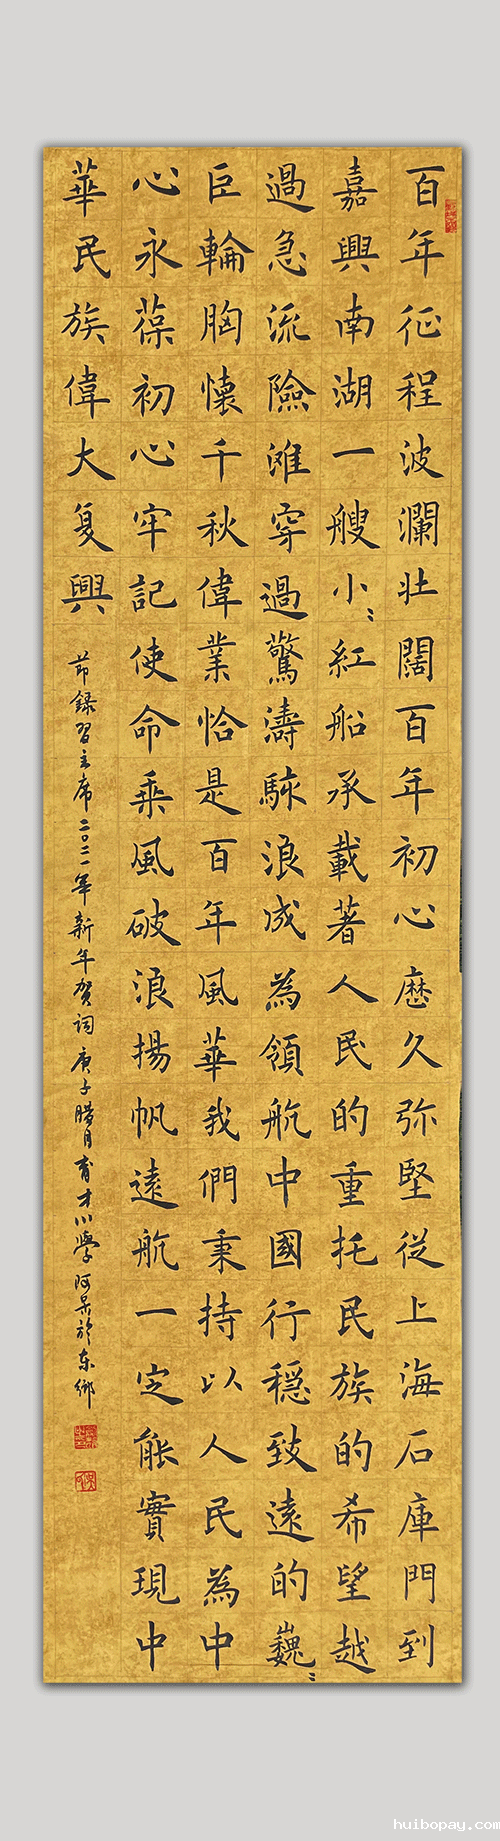 百年征程波瀾壯闊百年初心歷久弥堅從上海石庫門到
嘉興南湖一艘小〻紅船承載著人民的重托民族的希望越
過急流險滩穿過驚濤駭浪成為領航中國行穩致遠的巍〻
巨輪胸懷千秋偉業恰是百年風華我們秉持以人民為中
心永葆初心牢記使命乘風破浪揚帆遠航一定能實現中
華民族偉大复興
節録習主席二〇二一年新年贺词庚子腊月育才小學阿呆於东鄉
huibopay.com